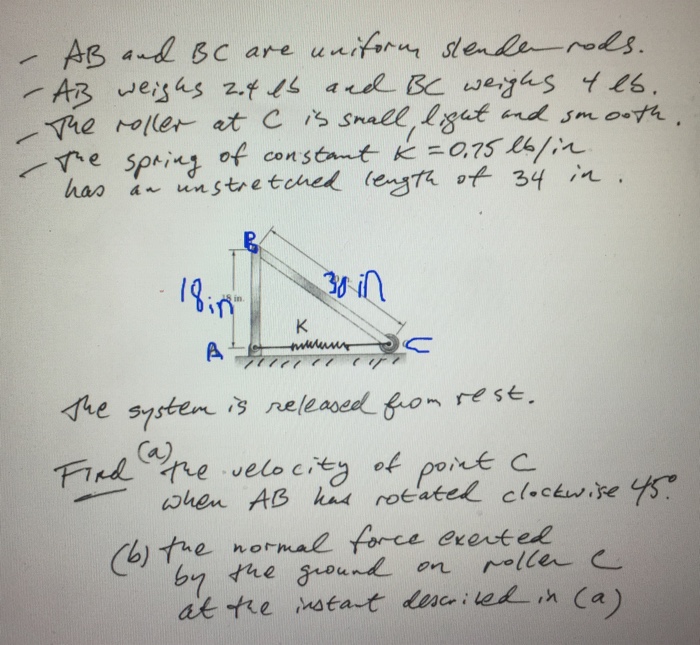 - AB and BC are uniform slender rods.
- AB weighs 2.4 lb and BC weighs 4 lb.
- The roller at C is small, light and smooth.
- The spring of constant K = 0.75 lb/in
has an unstretched length of 34 in.
B
18 in
30 in
K
A
C
The system is released from rest.
Find (a) the velocity of point C
when AB has rotated clockwise 45°.
(b) the normal force exerted
by the ground on roller C
at the instant described in (a)